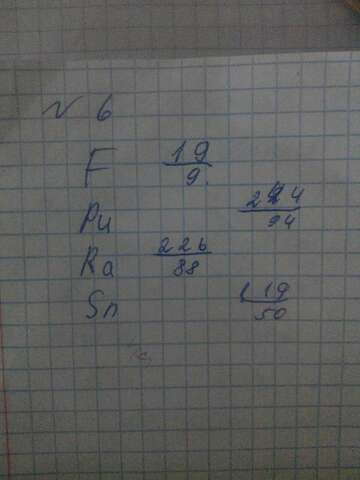 № 6
F 19
9
Pu 244
94
Ra 226
88
Sn 119
50